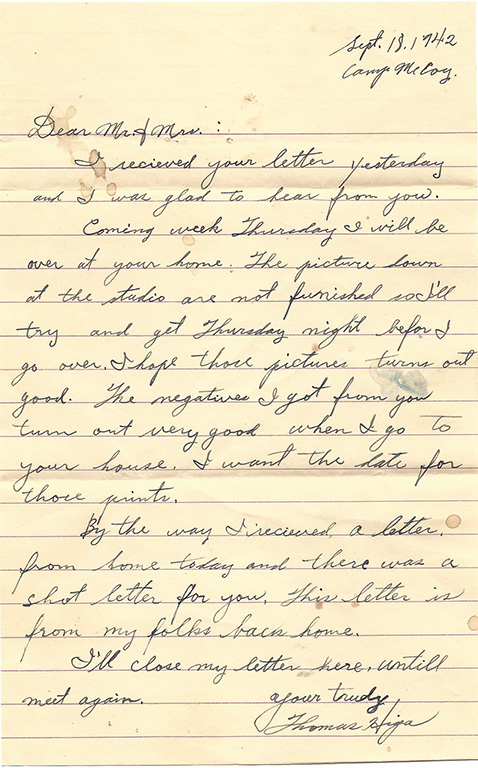 Sept. 18, 1942
Camp McCoy.
Dear Mr & Mrs. :
I recieved your letter yesterday
and I was glad to hear from you.
Coming week Thursday I will be
over at your home. The picture down
at the studio are not funished so I'll
try and get Thursday night befor I
go over. I hope those pictures turns out
good. The negatives I got from you
turn out very good when I go to
your house. I want the date for
those prints.
By the way I recieved, a letter.
from home today and there was a
shot letter for you. This letter is
from my folks back home.
I'll close my letter here. untill
meet again.
your trudy,
Thomas Higa